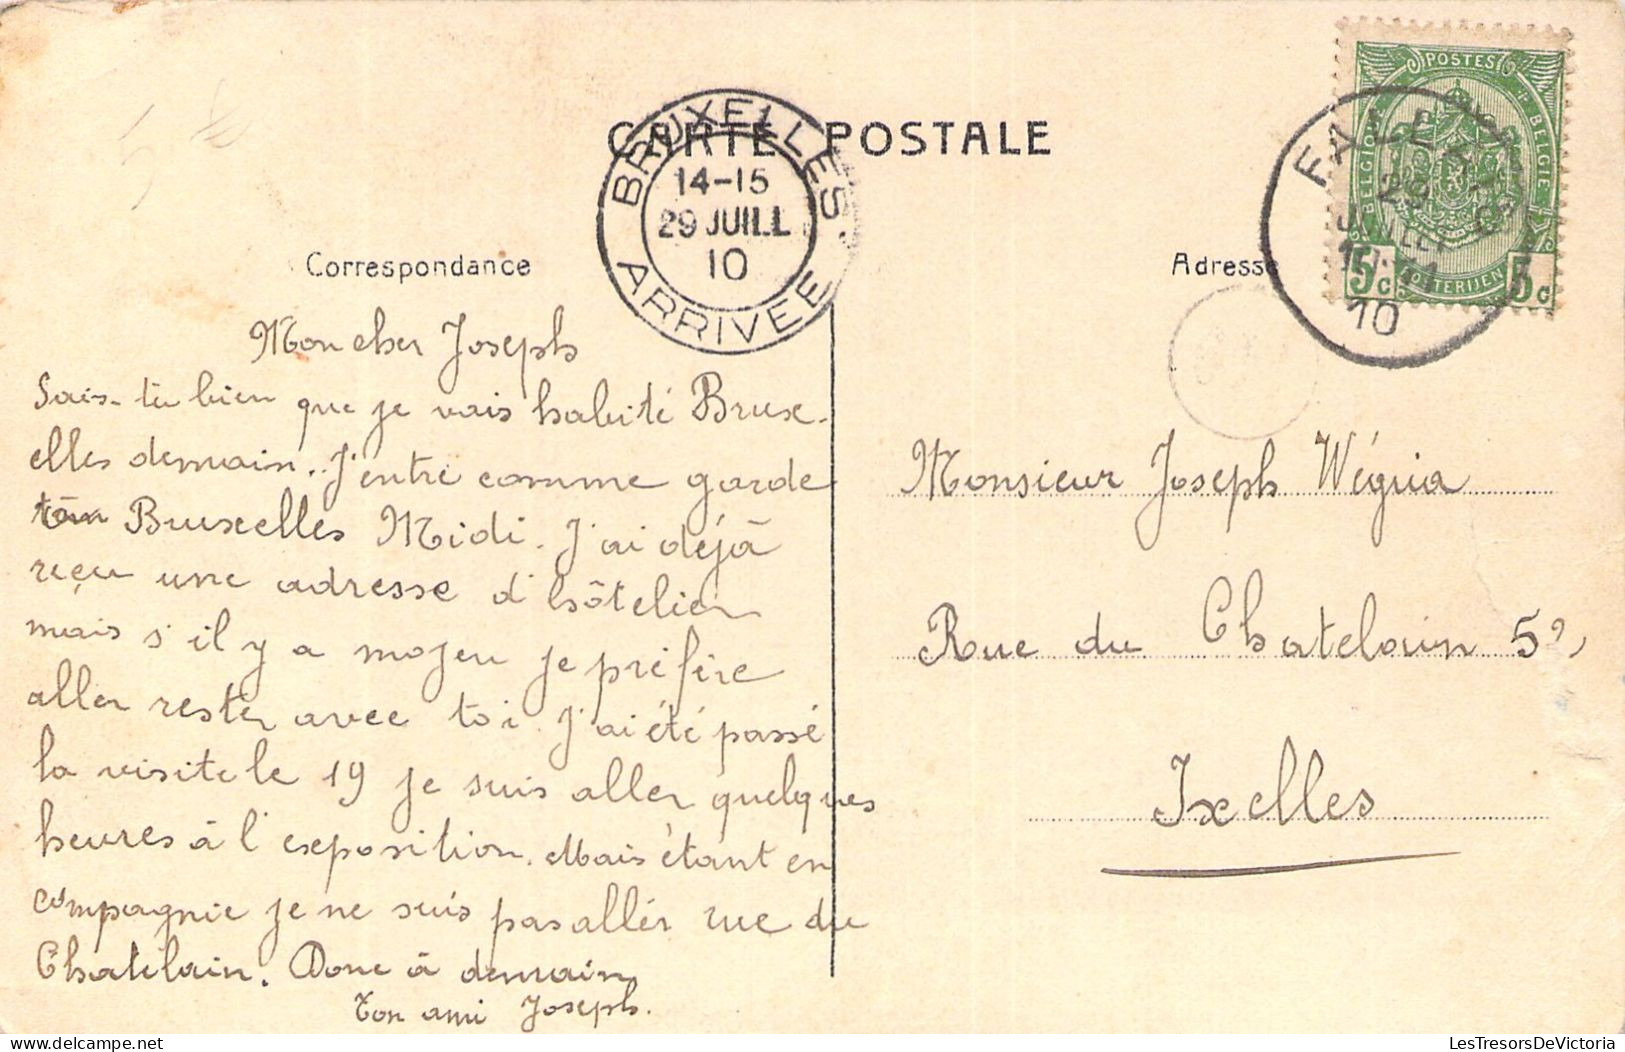 CARTE POSTALE
BRUXELLES
14-15
29 JUILL
10
ARRIVEE
POSTES
BELGIQUE
BELGIE
5c
5c
10
Correspondance
Adresse
Mon cher Joseph
Sais-tu bien que je vais habité Brux-
elles demain. J'entre comme garde
Bruxelles Midi. J'ai déjà
reçu une adresse d'hôtelier
mais s'il y a mojeu je préfère
aller rester avec toi. J'ai été passé
la visite le 19 je suis aller quelques
heures à l'exposition. Mais étant en
compagnie je ne suis pas allér rue du
Chatelain. Donc à demain
Ton ami Joseph.
Monsieur Joseph Wégria
Rue du Chatelain
Ixelles
LesTresorsDeVictoria.com